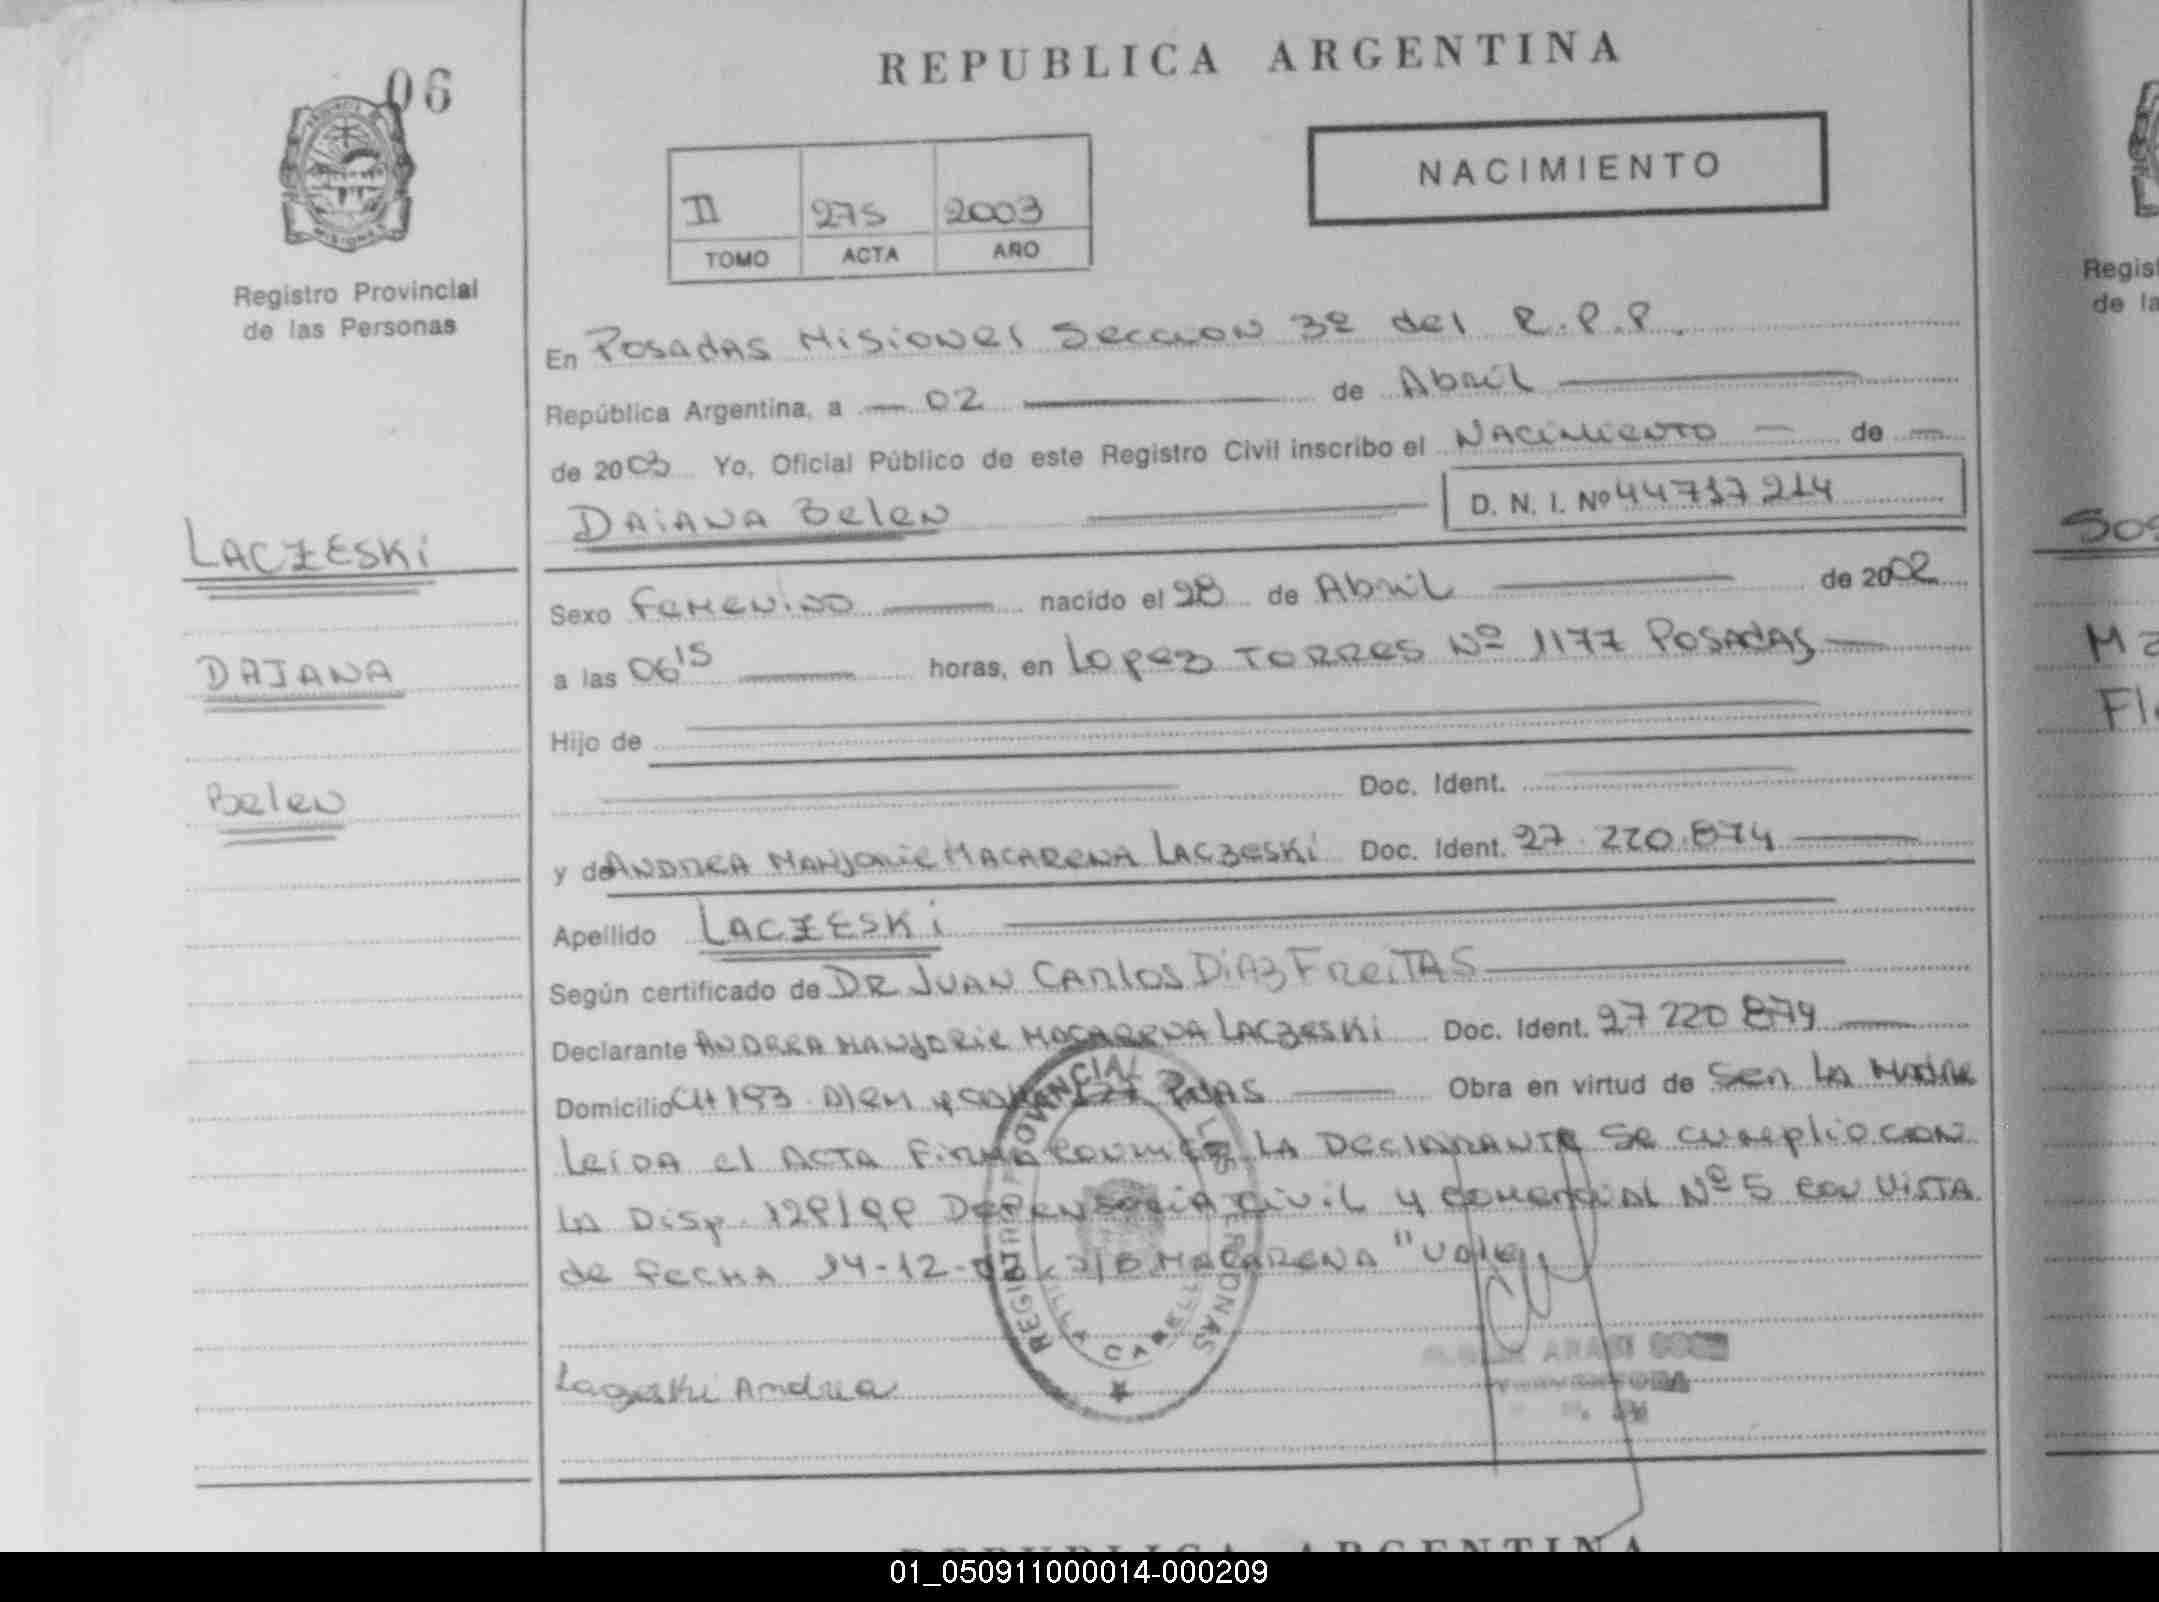 REPUBLICA ARGENTINA
06
NACIMIENTO
II 275 2003
TOMO ACTA AÑO
MISIONES
Registro Provincial
de las Personas
En Posadas Misiones Seccion 3º del R.P.P.
República Argentina, a — 02 de Abril
de 2003 Yo, Oficial Público de este Registro Civil inscribo el Nacimiento — de —
Daiana Belen D. N. I. Nº 44717214
LACZESKi
DAIANA
Belen
Sexo Femenino nacido el 28 de Abril de 2002
a las 06 15 horas, en Lopez Torres Nº 1177 Posadas
Hijo de
Doc. Ident.
y de Andrea Marjorie Macarena Laczeski Doc. Ident. 27.220.874
Apellido LACZESKi
Según certificado de DR Juan Carlos Diaz Freitas
Declarante Andrea Marjorie Macarena Laczeski Doc. Ident. 27 220 874
Domicilio CH 193 Pdas Obra en virtud de Ser la Madre
Leida el Acta Firma conmigo la Declarante Se cumplio con
la Disp. Defensoria Civil y Comercial Nº 5 con vista
de fecha 14-12-02 S/B Macarena "Vale
REGISTRO PROVINCIAL DE LAS PERSONAS
VILLA CABELLO
Andrea
REPUBLICA ARGENTINA
Regist
de la
Sos
Ma
Fl
01_050911000014-000209